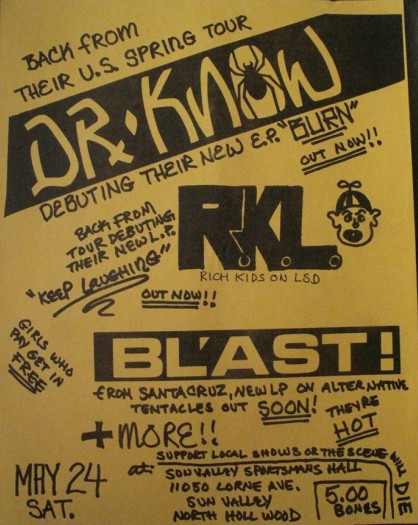 BACK FROM
THEIR U.S. SPRING TOUR
DR. KNOW
DEBUTING THEIR NEW E.P. "BURN"
OUT NOW!!
BACK FROM
TOUR DEBUTING
THEIR NEW L.P.
"KEEP LAUGHING"
OUT NOW!!
R.K.L.
RICH KIDS ON LSD
GIRLS WHO
PAY GET IN
FREE
BL'AST!
FROM SANTACRUZ, NEW LP ON ALTERNATIVE
TENTACLES OUT SOON! THEYRE
HOT
+MORE!!
SUPPORT LOCAL SHOWS OR THE SCENE WILL DIE
MAY 24
SAT.
at: SUN VALLEY SPORTSMANS HALL
11050 LORNE AVE.
SUN VALLEY
NORTH HOLLWOOD
5.00
BONES